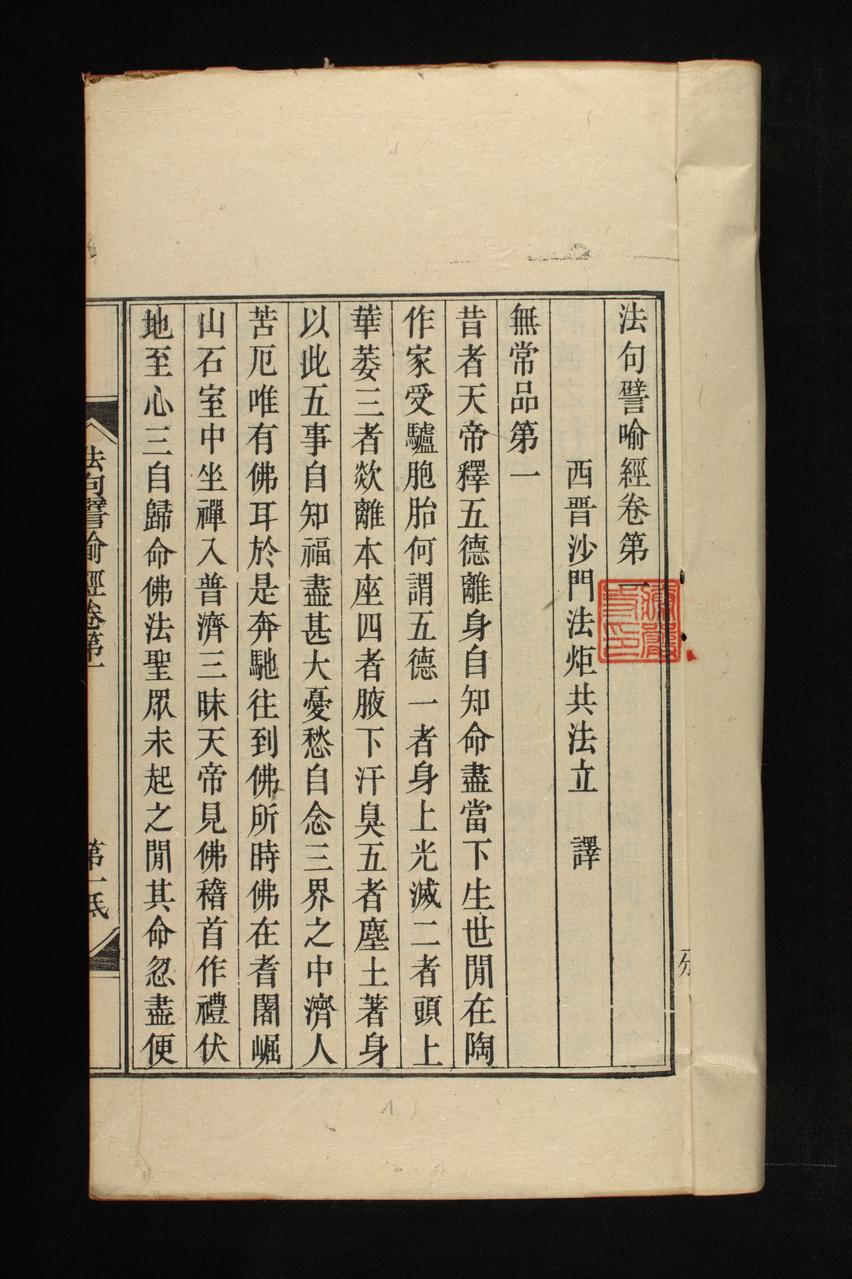 法句譬喻經卷第一
西晉沙門法炬共法立 譯
無常品第一
昔者天帝釋五德離身自知命盡當下生世閒在陶
作家受驢胞胎何謂五德一者身上光滅二者頭上
華萎三者欻離本座四者腋下汗臭五者塵土著身
以此五事自知福盡甚大憂愁自念三界之中濟人
苦厄唯有佛耳於是奔馳往到佛所時佛在耆闍崛
山石室中坐禪入普濟三昧天帝見佛稽首作禮伏
地至心三自歸命佛法聖眾未起之閒其命忽盡便
法句譬喻經卷第一
第一紙